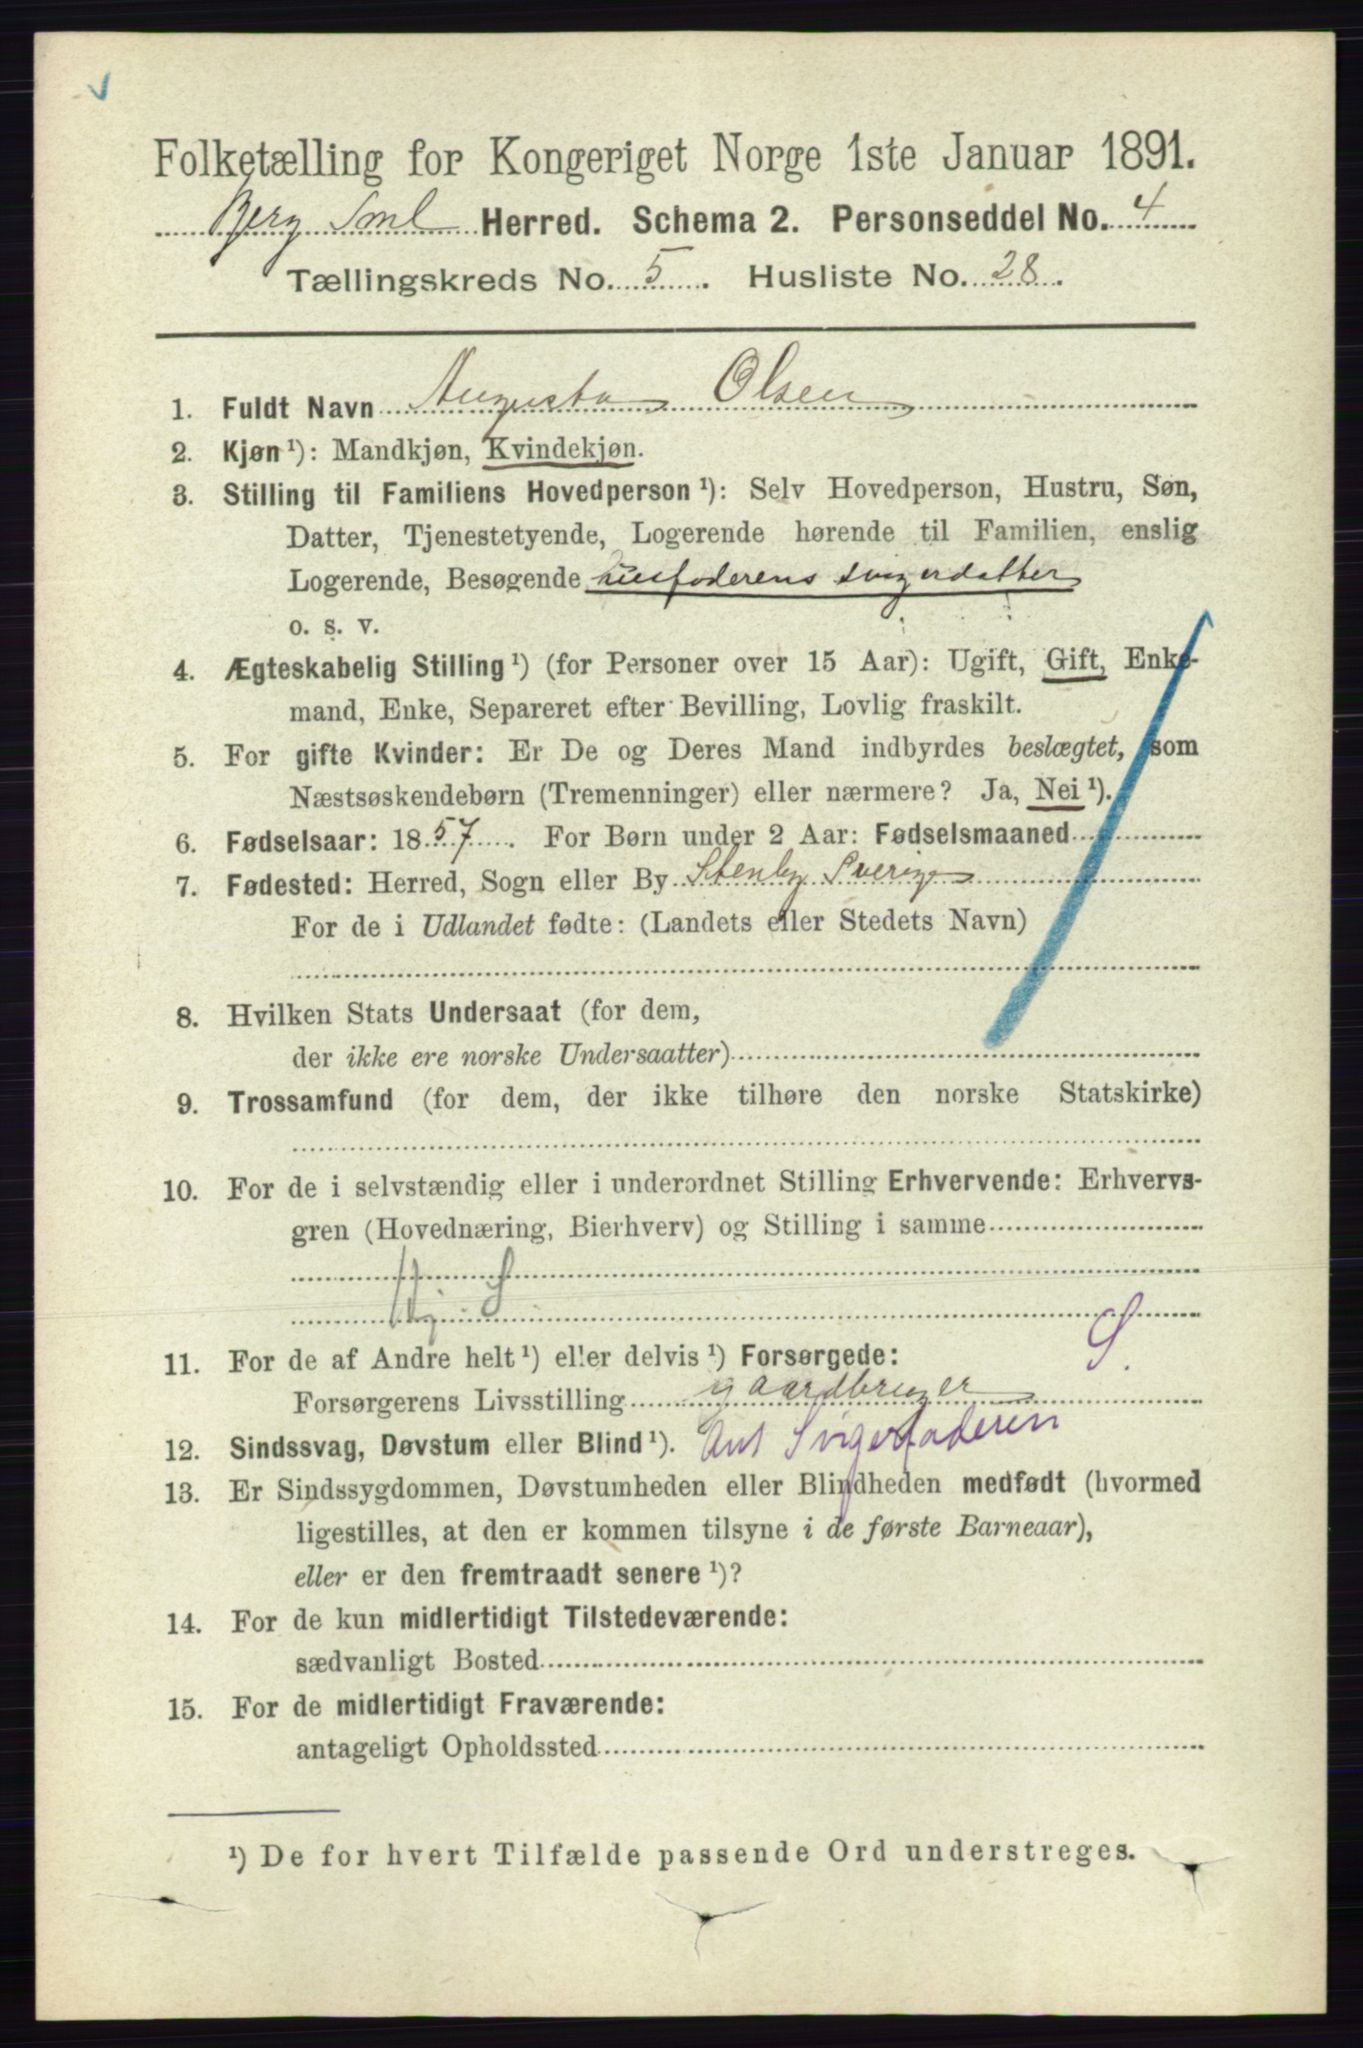 Folketælling for Kongeriget Norge 1ste Januar 1891.
Berg Sml Herred. Schema 2. Personseddel No. 4
Tællingskreds No. 5. Husliste No. 28.
1. Fuldt Navn Augusta Olsen
2. Kjøn ¹): Mandkjøn, Kvindekjøn.
3. Stilling til Familiens Hovedperson ¹): Selv Hovedperson, Hustru, Søn,
Datter, Tjenestetyende, Logerende hørende til Familien, enslig
Logerende, Besøgende Husfaderens svigerdatter
o. s. v.
4. Ægteskabelig Stilling ¹) (for Personer over 15 Aar): Ugift, Gift, Enke-
mand, Enke, Separeret efter Bevilling, Lovlig fraskilt.
5. For gifte Kvinder: Er De og Deres Mand indbyrdes beslægtet, som
Næstsøskendebørn (Tremenninger) eller nærmere? Ja, Nei ¹).
6. Fødselsaar: 1857. For Børn under 2 Aar: Fødselsmaaned
7. Fødested: Herred, Sogn eller By Stenby Sverige
For de i Udlandet fødte: (Landets eller Stedets Navn)
8. Hvilken Stats Undersaat (for dem,
der ikke ere norske Undersaatter)
9. Trossamfund (for dem, der ikke tilhøre den norske Statskirke)
10. For de i selvstændig eller i underordnet Stilling Erhvervende: Erhvervs-
gren (Hovednæring, Bierhverv) og Stilling i samme
S.
11. For de af Andre helt ¹) eller delvis ¹) Forsørgede:
Forsørgerens Livsstilling gaardbruger
12. Sindssvag, Døvstum eller Blind ¹). Ant Svigerfaderen
13. Er Sindssygdommen, Døvstumheden eller Blindheden medfødt (hvormed
ligestilles, at den er kommen tilsyne i de første Barneaar),
eller er den fremtraadt senere ¹)?
14. For de kun midlertidigt Tilstedeværende:
sædvanligt Bosted
15. For de midlertidigt Fraværende:
antageligt Opholdssted
¹) De for hvert Tilfælde passende Ord understreges.